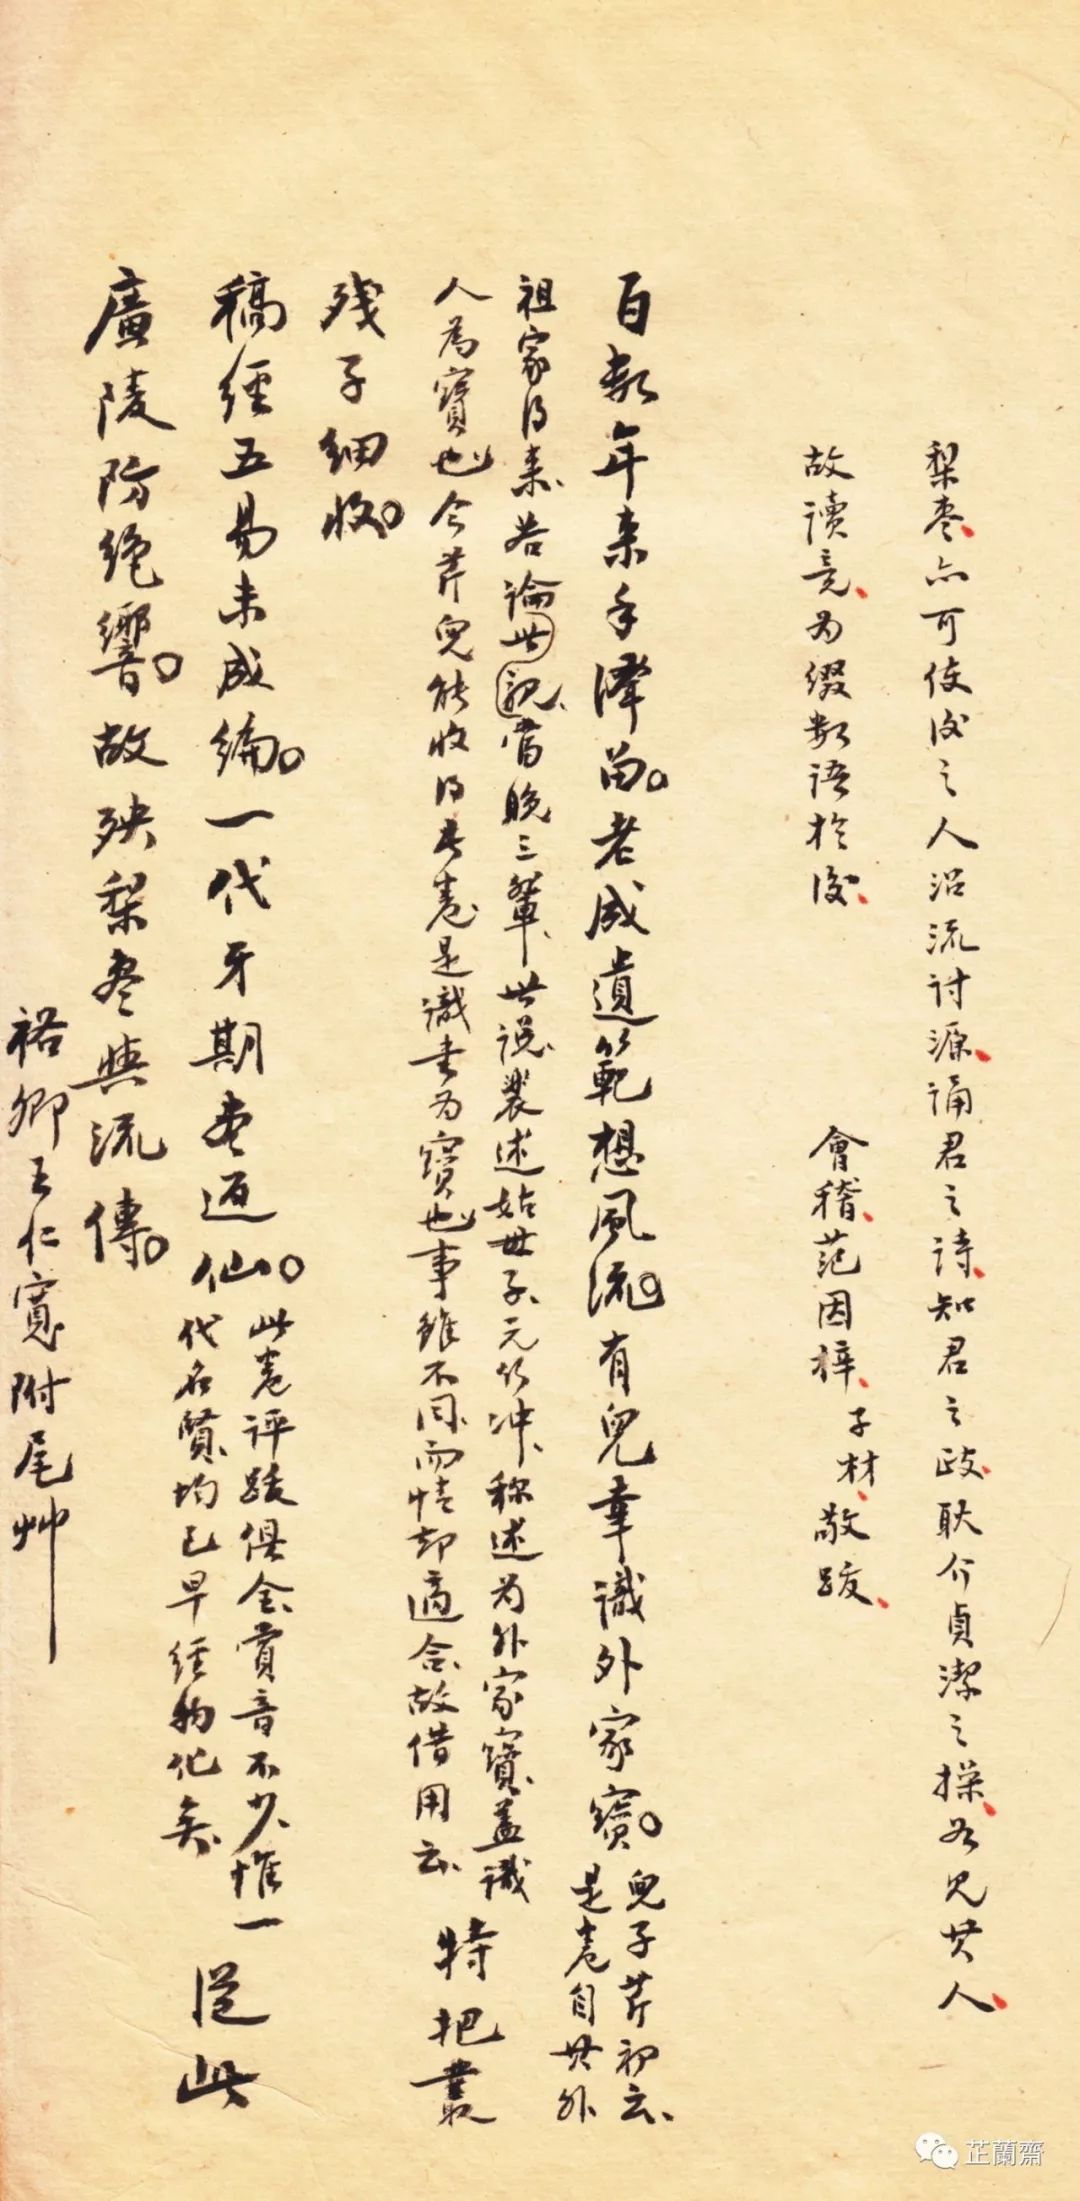 梨棗亦可使後之人沿流討源誦君之詩知君之政耿介貞潔之操如見其人
故讀竟為綴數語於後
會稽范因梓子材敬跋
百數年來手澤留老成遺範想風流有兒幸識外家寶
兒子芹初云
是卷自其外
祖家得來若論世説當晚三輩世說裴述姑母子元行冲称述為外家寶蓋識
人為寶也今芹兒能收得此卷是識書為寶也事雖不同而情却適合故借用云
特把叢
殘子細收
稿經五易未成編一代牙期盡逝仙
此卷評跋俱全賞音不少惟一
代名賢均已早經物化矣
從此
廣陵防絶響故殃梨棗與流傳
裕卿王仁寬附尾艸
芷蘭齋